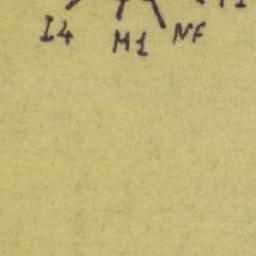 I4 M1 NF